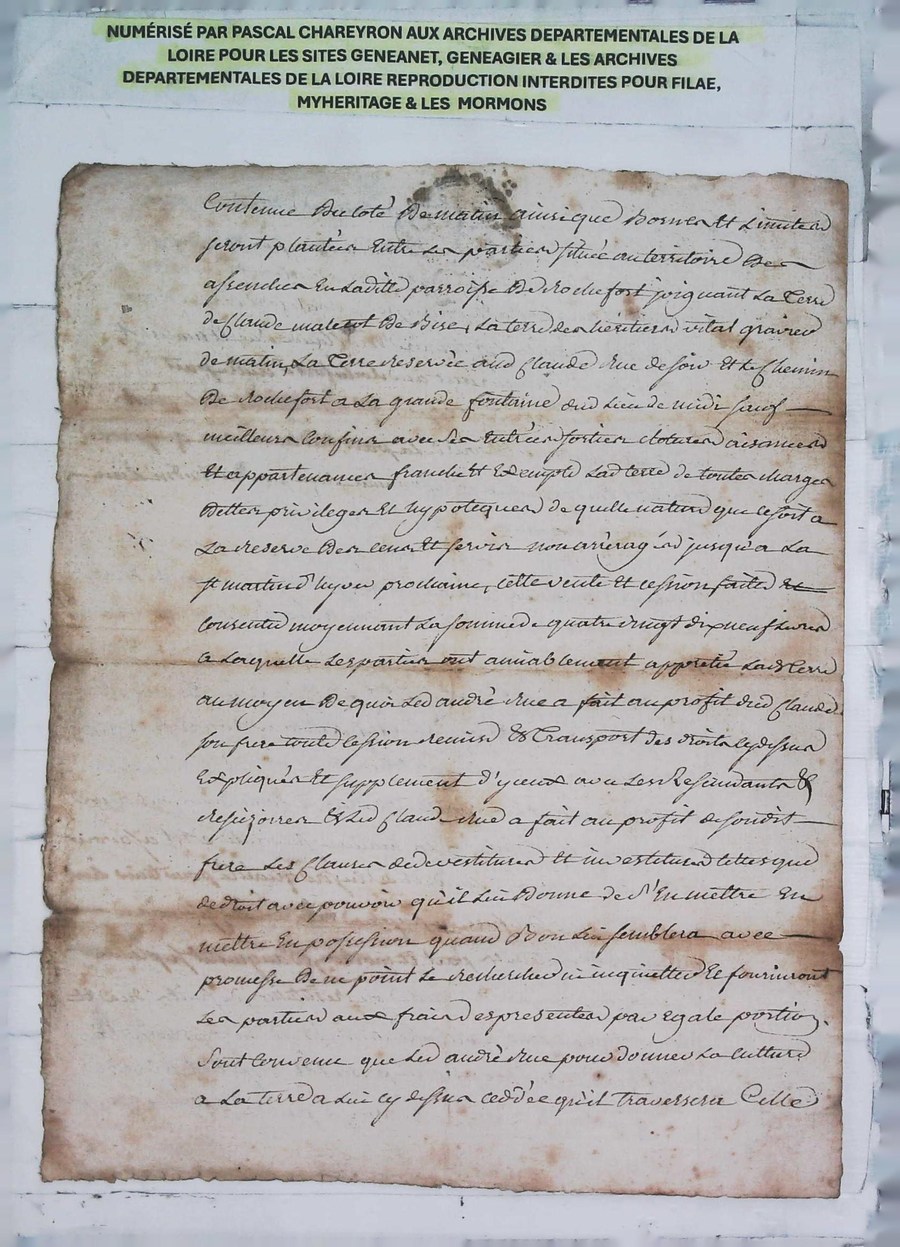 NUMÉRISÉ PAR PASCAL CHAREYRON AUX ARCHIVES DEPARTEMENTALES DE LA
LOIRE POUR LES SITES GENEANET, GENEAGIER & LES ARCHIVES
DEPARTEMENTALES DE LA LOIRE REPRODUCTION INTERDITES POUR FILAE,
MYHERITAGE & LES MORMONS
Contenue du coté de matin ainsi que bornes et limites
seront plantées entre les parties située au territoire des
assendes en ladite parroisse de Rochefort joignant la terre
de Claude de bise, la terre des héritiers vital
de matin, la terre reservée aud Claude Rue de soir et le chemin
de Rochefort a la grande fontaine dud lieu de midi sauf
meilleurs confins avec ses entrées sorties clotures aisances
et appartenances franche et exempte lad terre de toutes charges
dettes privileges et hypoteques de quelle nature que ce soit a
la reserve des cens et servis non arréragés jusqu'a la
st martin d'hyver prochaine, cette vente et cession faite et
consentie moyennant la somme de quatre vingt dix neuf livres
a laquelle les parties ont amiablement appretié lad terre
au moyen de quoi led andré Rue a fait au profit dud Claude
son frere toute cession remise & transport des droits cy dessus
expliqués et supplement d'yceux avec les rescindants &
rescisoires & led Claude Rue a fait au profit de sondit
frere les clauses de devestitures et investitures telles que
de droit avec pouvoir qu'il lui donne de s'en mettre en
mettre en possession quand bon lui semblera avec
promesse de ne point le rechercher ni inquietter et fourniront
les parties aux frais des presentes par egale portion.
sont convenu que led andré Rue pour donner la culture
a la terre a lui cy dessus ceddée qu'il traversera celle